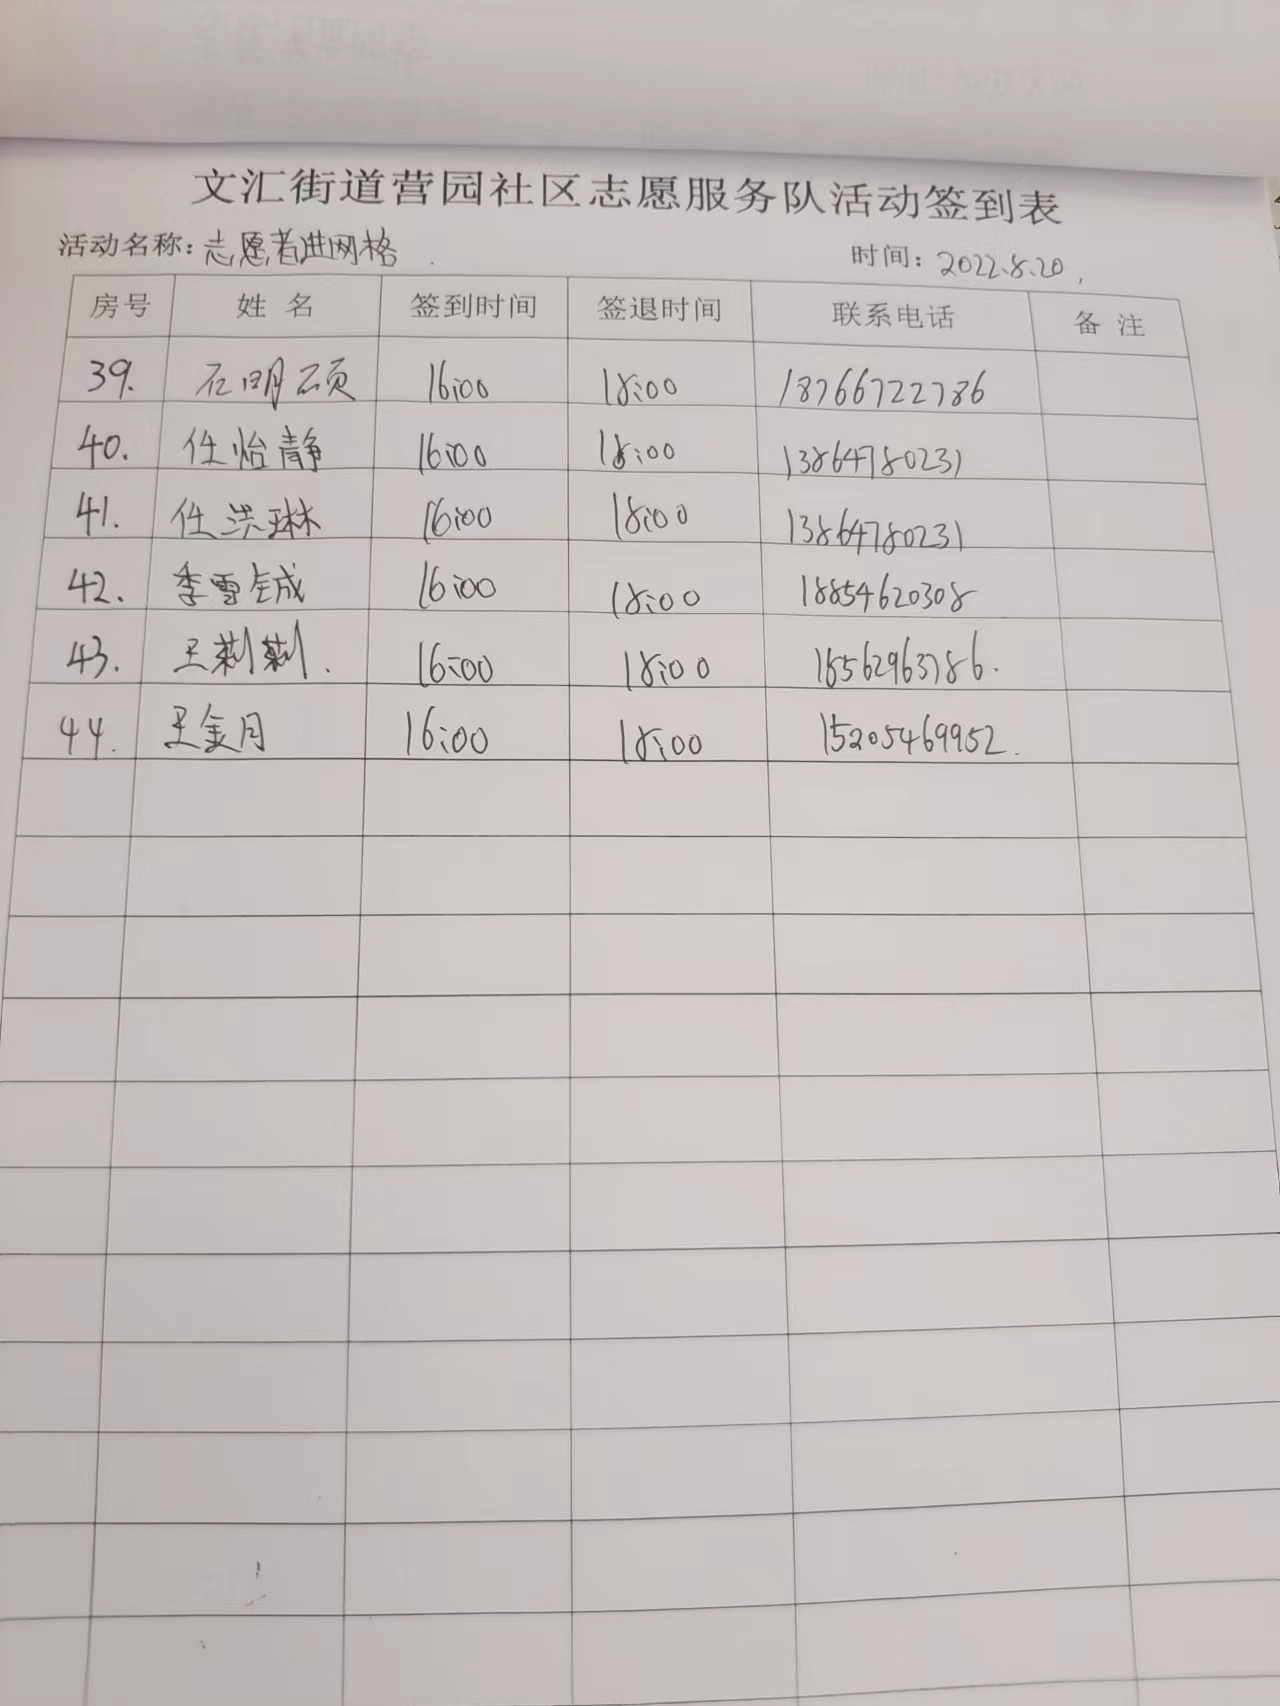 文汇街道营园社区志愿服务队活动签到表
活动名称：志愿者进网格 时间：2022.8.20
房号 姓名 签到时间 签退时间 联系电话 备注
39. 石明硕 16:00 18:00 18766722786
40. 任怡静 16:00 18:00 13864780231
41. 任洪琳 16:00 18:00 13864780231
42. 季雪铖 16:00 18:00 18854620308
43. 王莉莉. 16:00 18:00 18562963786.
44. 王金月 16:00 18:00 15205469952.